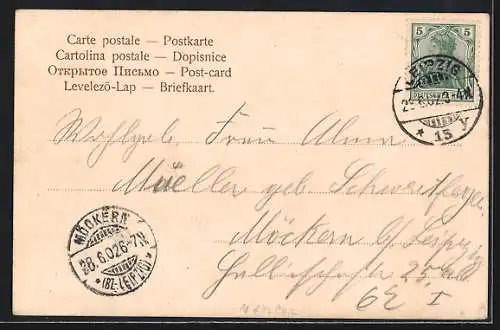 Carte postale — Postkarte
Cartolina postale — Dopisnice
Открытое Письмо — Post-card
Levelező-Lap — Briefkaart.
5 5
LEIPZIG
* 13 y
Wohlgeb. Frau Alma
Mueller geb.
Möckern b/Leipzig
25
62 I
MÖCKERN
28.6.02 6-7N
*(BZ. LEIPZIG)*